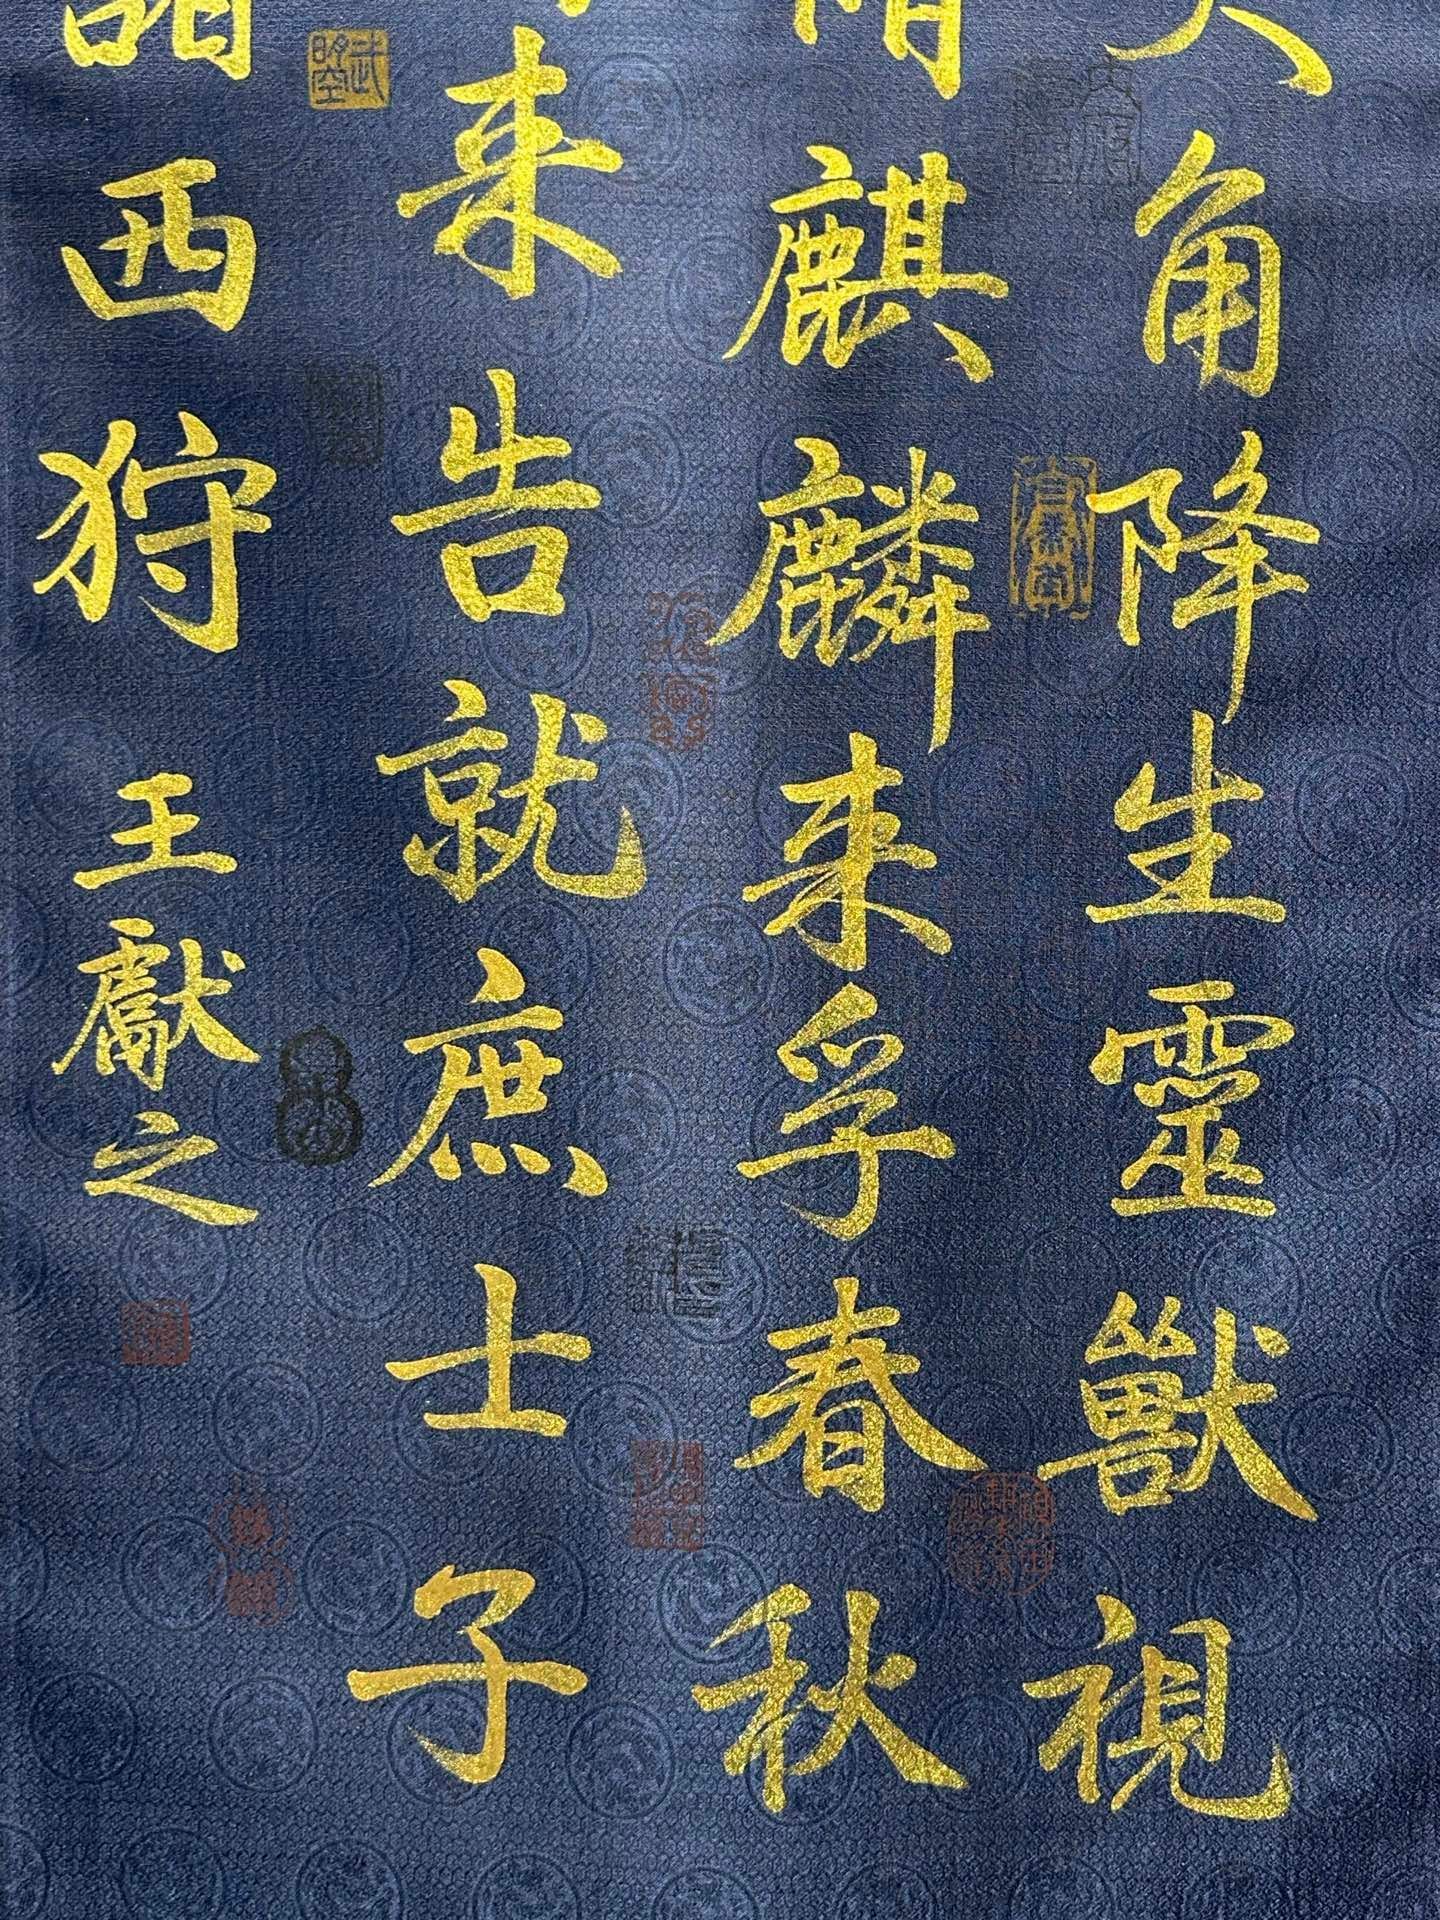 角降生靈獸視
麒麟来孚春秋
来告就庶士子
西狩
王獻之